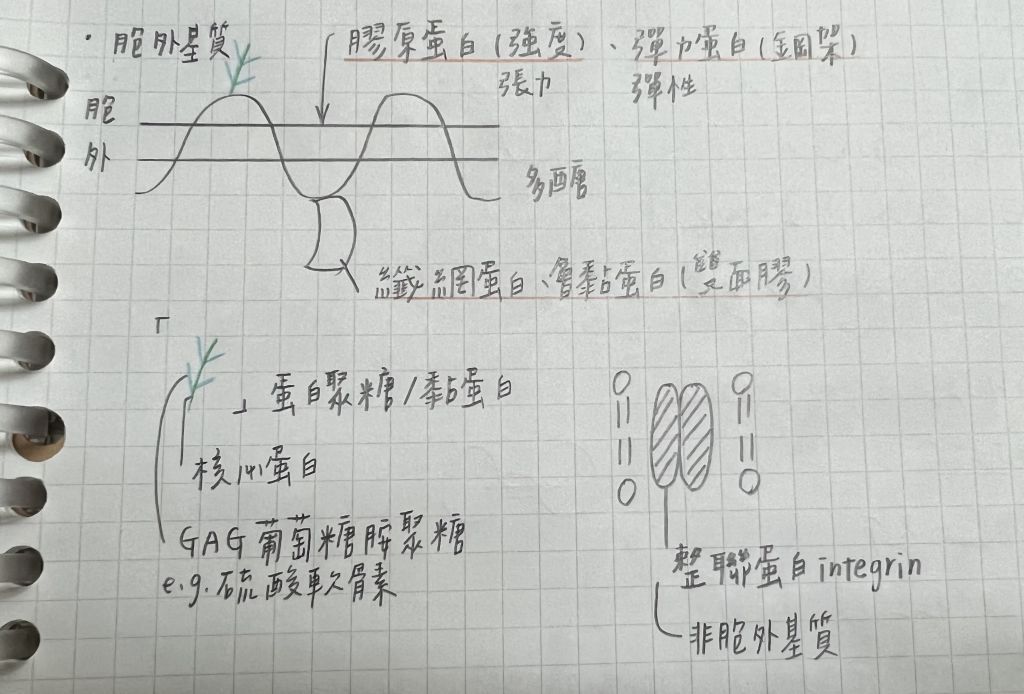 · 胞外基質
膠原蛋白(強度)、彈力蛋白(鋼架)
張力 彈性
胞
外
多醣
纖網蛋白、層黏蛋白(雙面膠)
「
」蛋白聚糖/黏蛋白
核心蛋白
GAG 葡萄糖胺聚糖
e.g. 硫酸軟骨素
整聯蛋白 integrin
非胞外基質